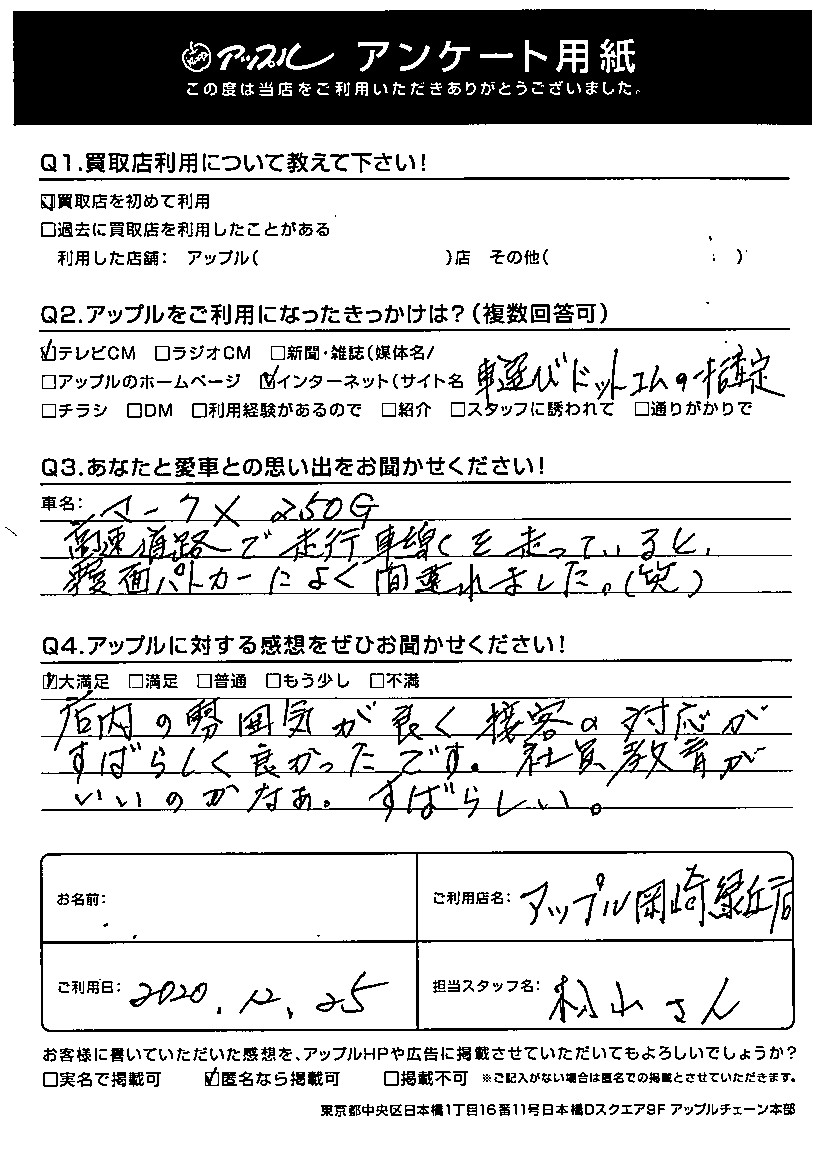 アップル アンケート用紙
この度は当店をご利用いただきありがとうございました。
Q1.買取店利用について教えて下さい!
☑買取店を初めて利用
□過去に買取店を利用したことがある
利用した店舗: アップル( )店 その他( )
Q2.アップルをご利用になったきっかけは?(複数回答可)
☑テレビCM □ラジオCM □新聞・雑誌(媒体名/
□アップルのホームページ ☑インターネット(サイト名 車選びドットコムの指定
□チラシ □DM □利用経験があるので □紹介 □スタッフに誘われて □通りがかりで
Q3.あなたと愛車との思い出をお聞かせください!
車名: マークX 250G
高速道路で走行車線を走っていると、
覆面パトカーによく間違れました。(笑)
Q4.アップルに対する感想をぜひお聞かせください!
☑大満足 □満足 □普通 □もう少し □不満
店内の雰囲気が良く接客の対応が
すばらしく良かったです。社員教育が
いいのかなぁ。すばらしい。
お名前:
ご利用店名: アップル岡崎緑丘店
ご利用日: 2020.12.25
担当スタッフ名: 松山さん
お客様に書いていただいた感想を、アップルHPや広告に掲載させていただいてもよろしいでしょうか?
□実名で掲載可 ☑匿名なら掲載可 □掲載不可 ※ご記入がない場合は匿名での掲載とさせていただきます。
東京都中央区日本橋1丁目16番11号日本橋Dスクエア9F アップルチェーン本部